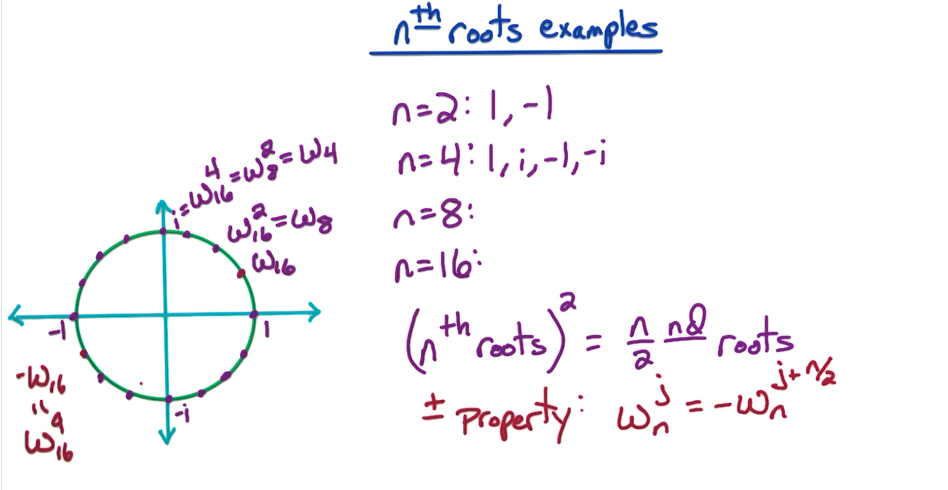 nth roots examples
n=2: 1, -1
n=4: 1, i, -1, -i
n=8:
n=16:
(nth roots)² = n/2 nd roots
± property: ωₙʲ = -ωₙʲ⁺ⁿ/²
i = ω₁₆⁴ = ω₈² = ω₄
ω₁₆² = ω₈
ω₁₆
-1
1
-i
-ω₁₆
"
ω₁₆⁹